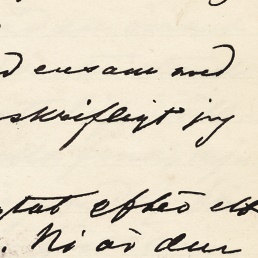 ensam med
skrifligt jag
efter ett
. Ni är den